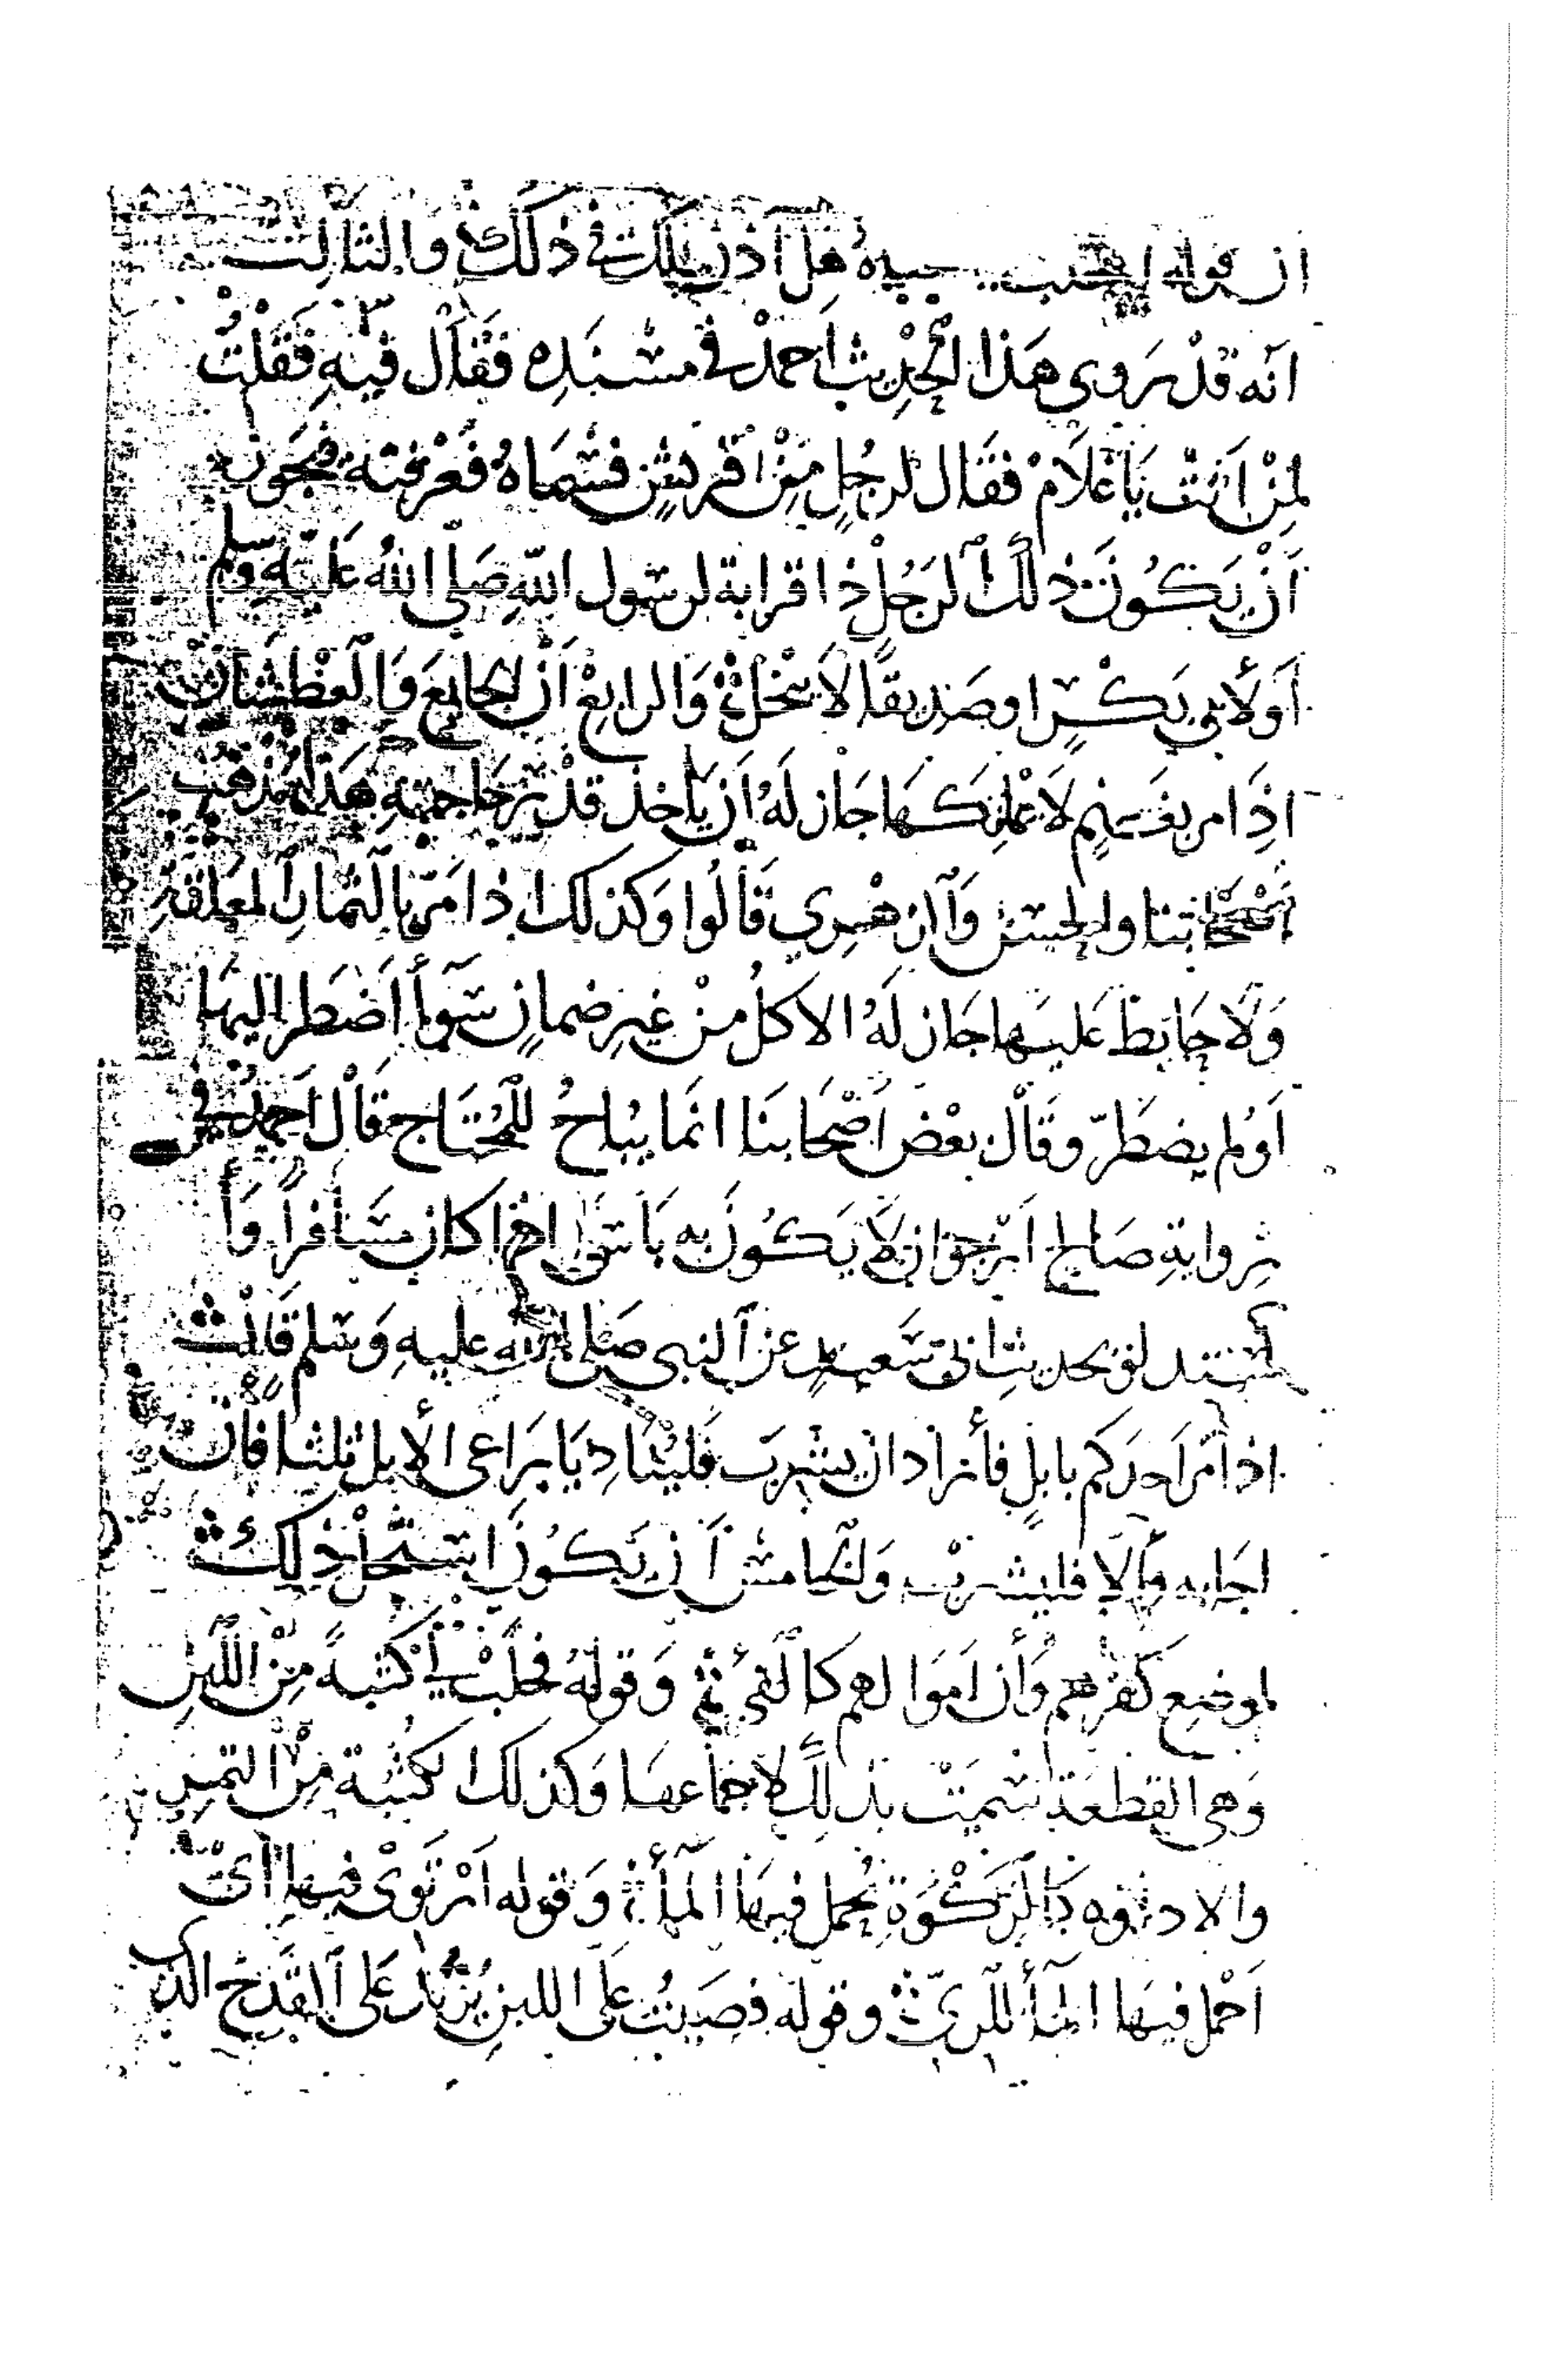 ان قوله هل أذن لك في ذلك والثالث
انه قد روى هذا الحديث احمد في مسنده فقال فيه فقلت
لمن انت يا غلام فقال لرجل من قريش فسماه فعرفته فيجوز
أن يكون ذلك الرجل ذا قرابة لرسول الله صلى الله عليه وسلم
أو لأبي بكر او صديقا لا يبخل والرابع أن الجايع والعطشان
اذا مر بغنم لا يملكها جاز له أن ياخذ قدر حاجته هذا مذهب
أصحابنا والحسن والزهري قالوا وكذلك اذا مر بالثمار المعلقة
ولا حايط عليها جاز له الاكل من غير ضمان سوأ اضطر اليها
او لم يضطر وقال بعض أصحابنا انما يباح للمحتاج قال احمد في
رواية صالح ارجو ان لا يكون به باس اذا كان مسافرا وأ
لحديث ابي سعيد عن النبي صلى الله عليه وسلم قال
اذا مر احدكم بابل فأراد ان يشرب فلينادِ يا راعى الأبل ثلثا فان
اجابه وألا فليشرب والخامس أن يكون استحل ذلك
لموضع كفرهم وأن اموالهم كالفئ وقوله فحلب لي كثبة من اللبن
وهي القطعة سميت بذلك لاجتماعها وكذلك الكثبة من التمر
والاداوه كالركوة يحمل فيها المأ وقوله ارتوى فيها أي
احمل فيها المأ للري وقوله فصببت على اللبن يريد على القدح الذي